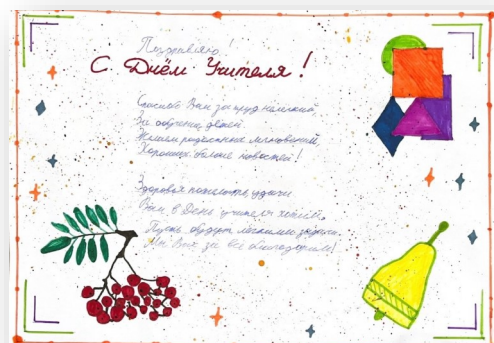 Поздравляю!
С Днём Учителя!
Спасибо Вам за труд нелёгкий,
За обучение детей
Желаем радостных мгновений,
Хороших больше новостей!
Здоровья пожелать, удачи
Вам в День учителя хотим,
Пусть будут лёгкими задачи,
Мы Вас за всё благодарим!